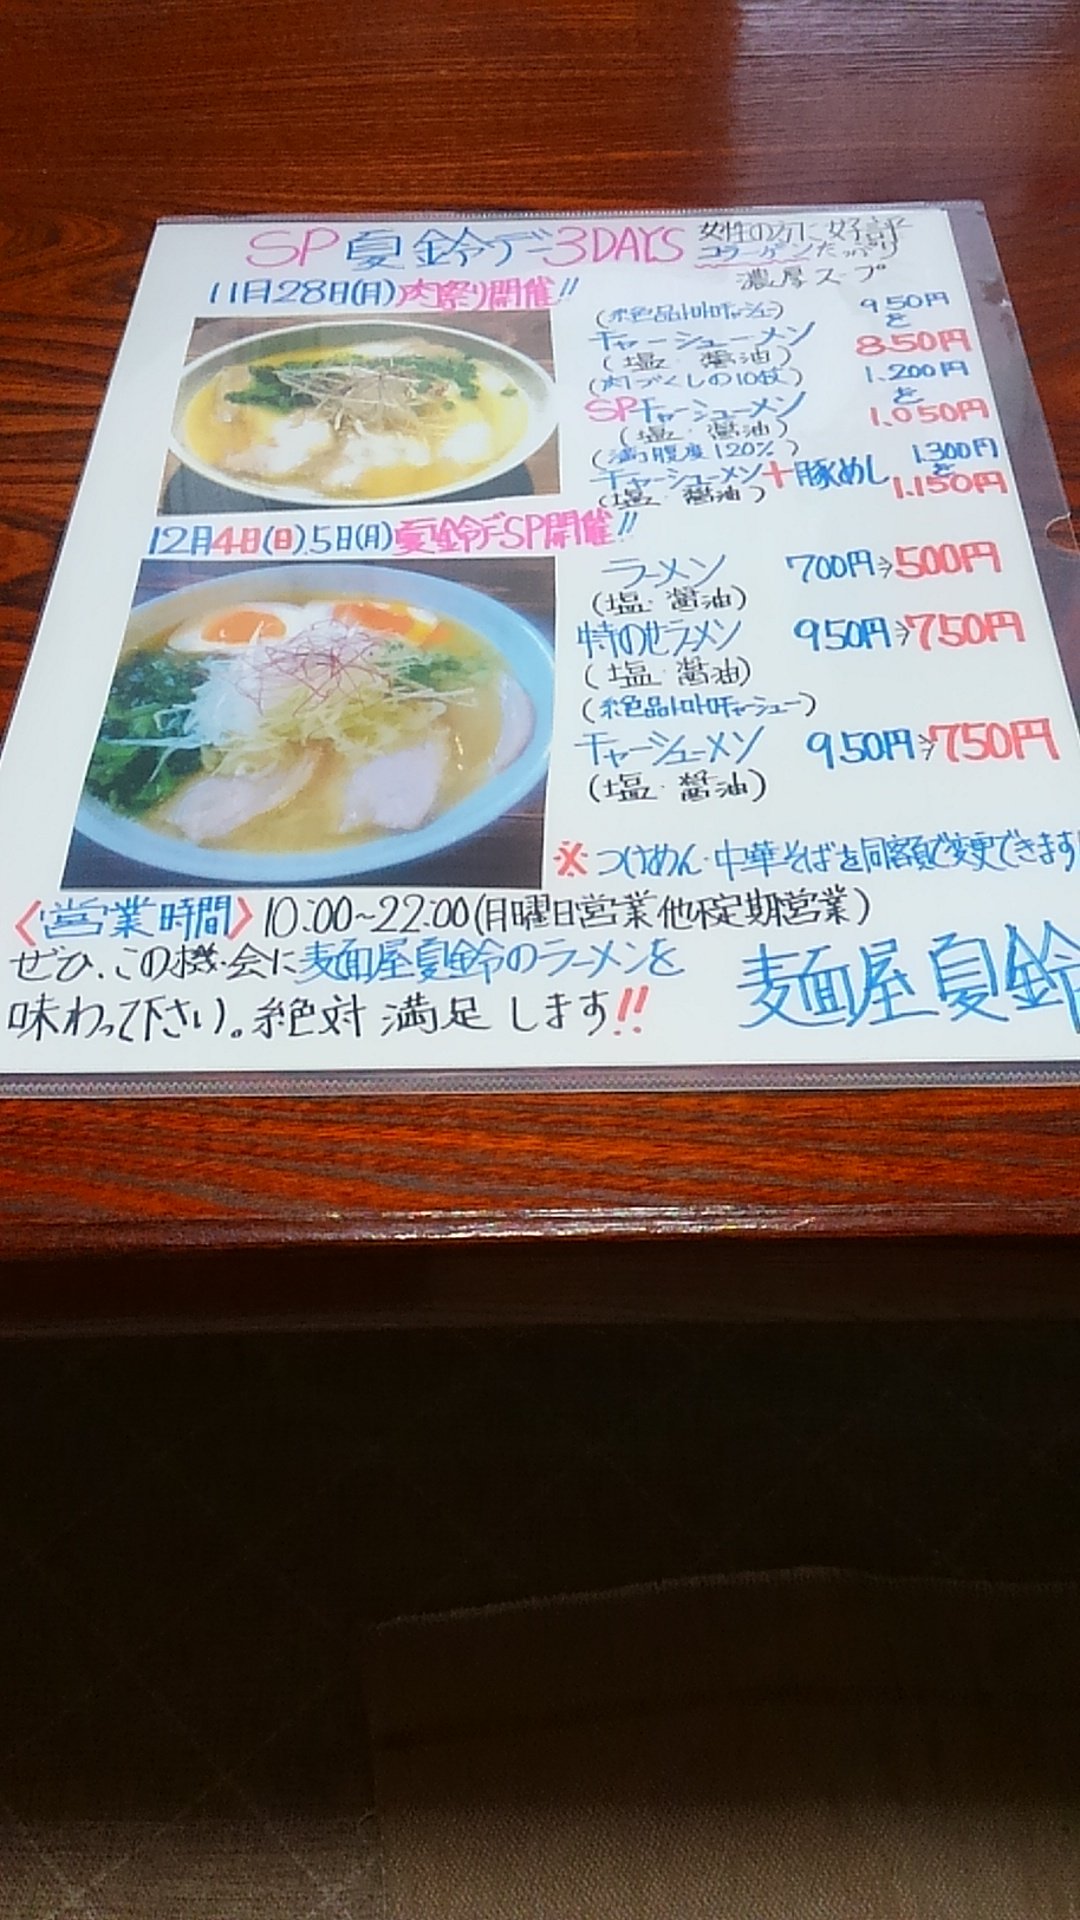 SP夏鈴デー3DAYS
女性の方に好評
コラーゲンたっぷり
濃厚スープ
11月28日(月)肉祭り開催!!
(絶品トロトロチャーシュー) 950円
を
チャーシューメン 850円
(塩・醤油)
(肉づくしの10枚) 1.200円
を
SPチャーシューメン 1.050円
(塩・醤油)
(満腹度120%) 1.300円
を
チャーシューメン+豚めし 1.150円
(塩・醤油)
12月4日(日).5日(月)夏鈴デーSP開催!!
ラーメン 700円⇒500円
(塩・醤油)
特のせラーメン 950円⇒750円
(塩・醤油)
(絶品トロトロチャーシュー)
チャーシューメン 950円⇒750円
(塩・醤油)
※つけめん・中華そばを同額で変更できます!
〈営業時間〉10:00~22:00(月曜日営業他不定期営業)
ぜひ、この機会に麺屋夏鈴のラーメンを
味わって下さい。絶対満足します!!
麺屋夏鈴